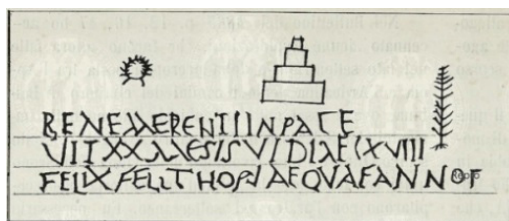 BENEMERENTI INPACE
VIIXX MESIS VI DIAE XVIII
FELIX FELLTHOPN AEQVAFANN